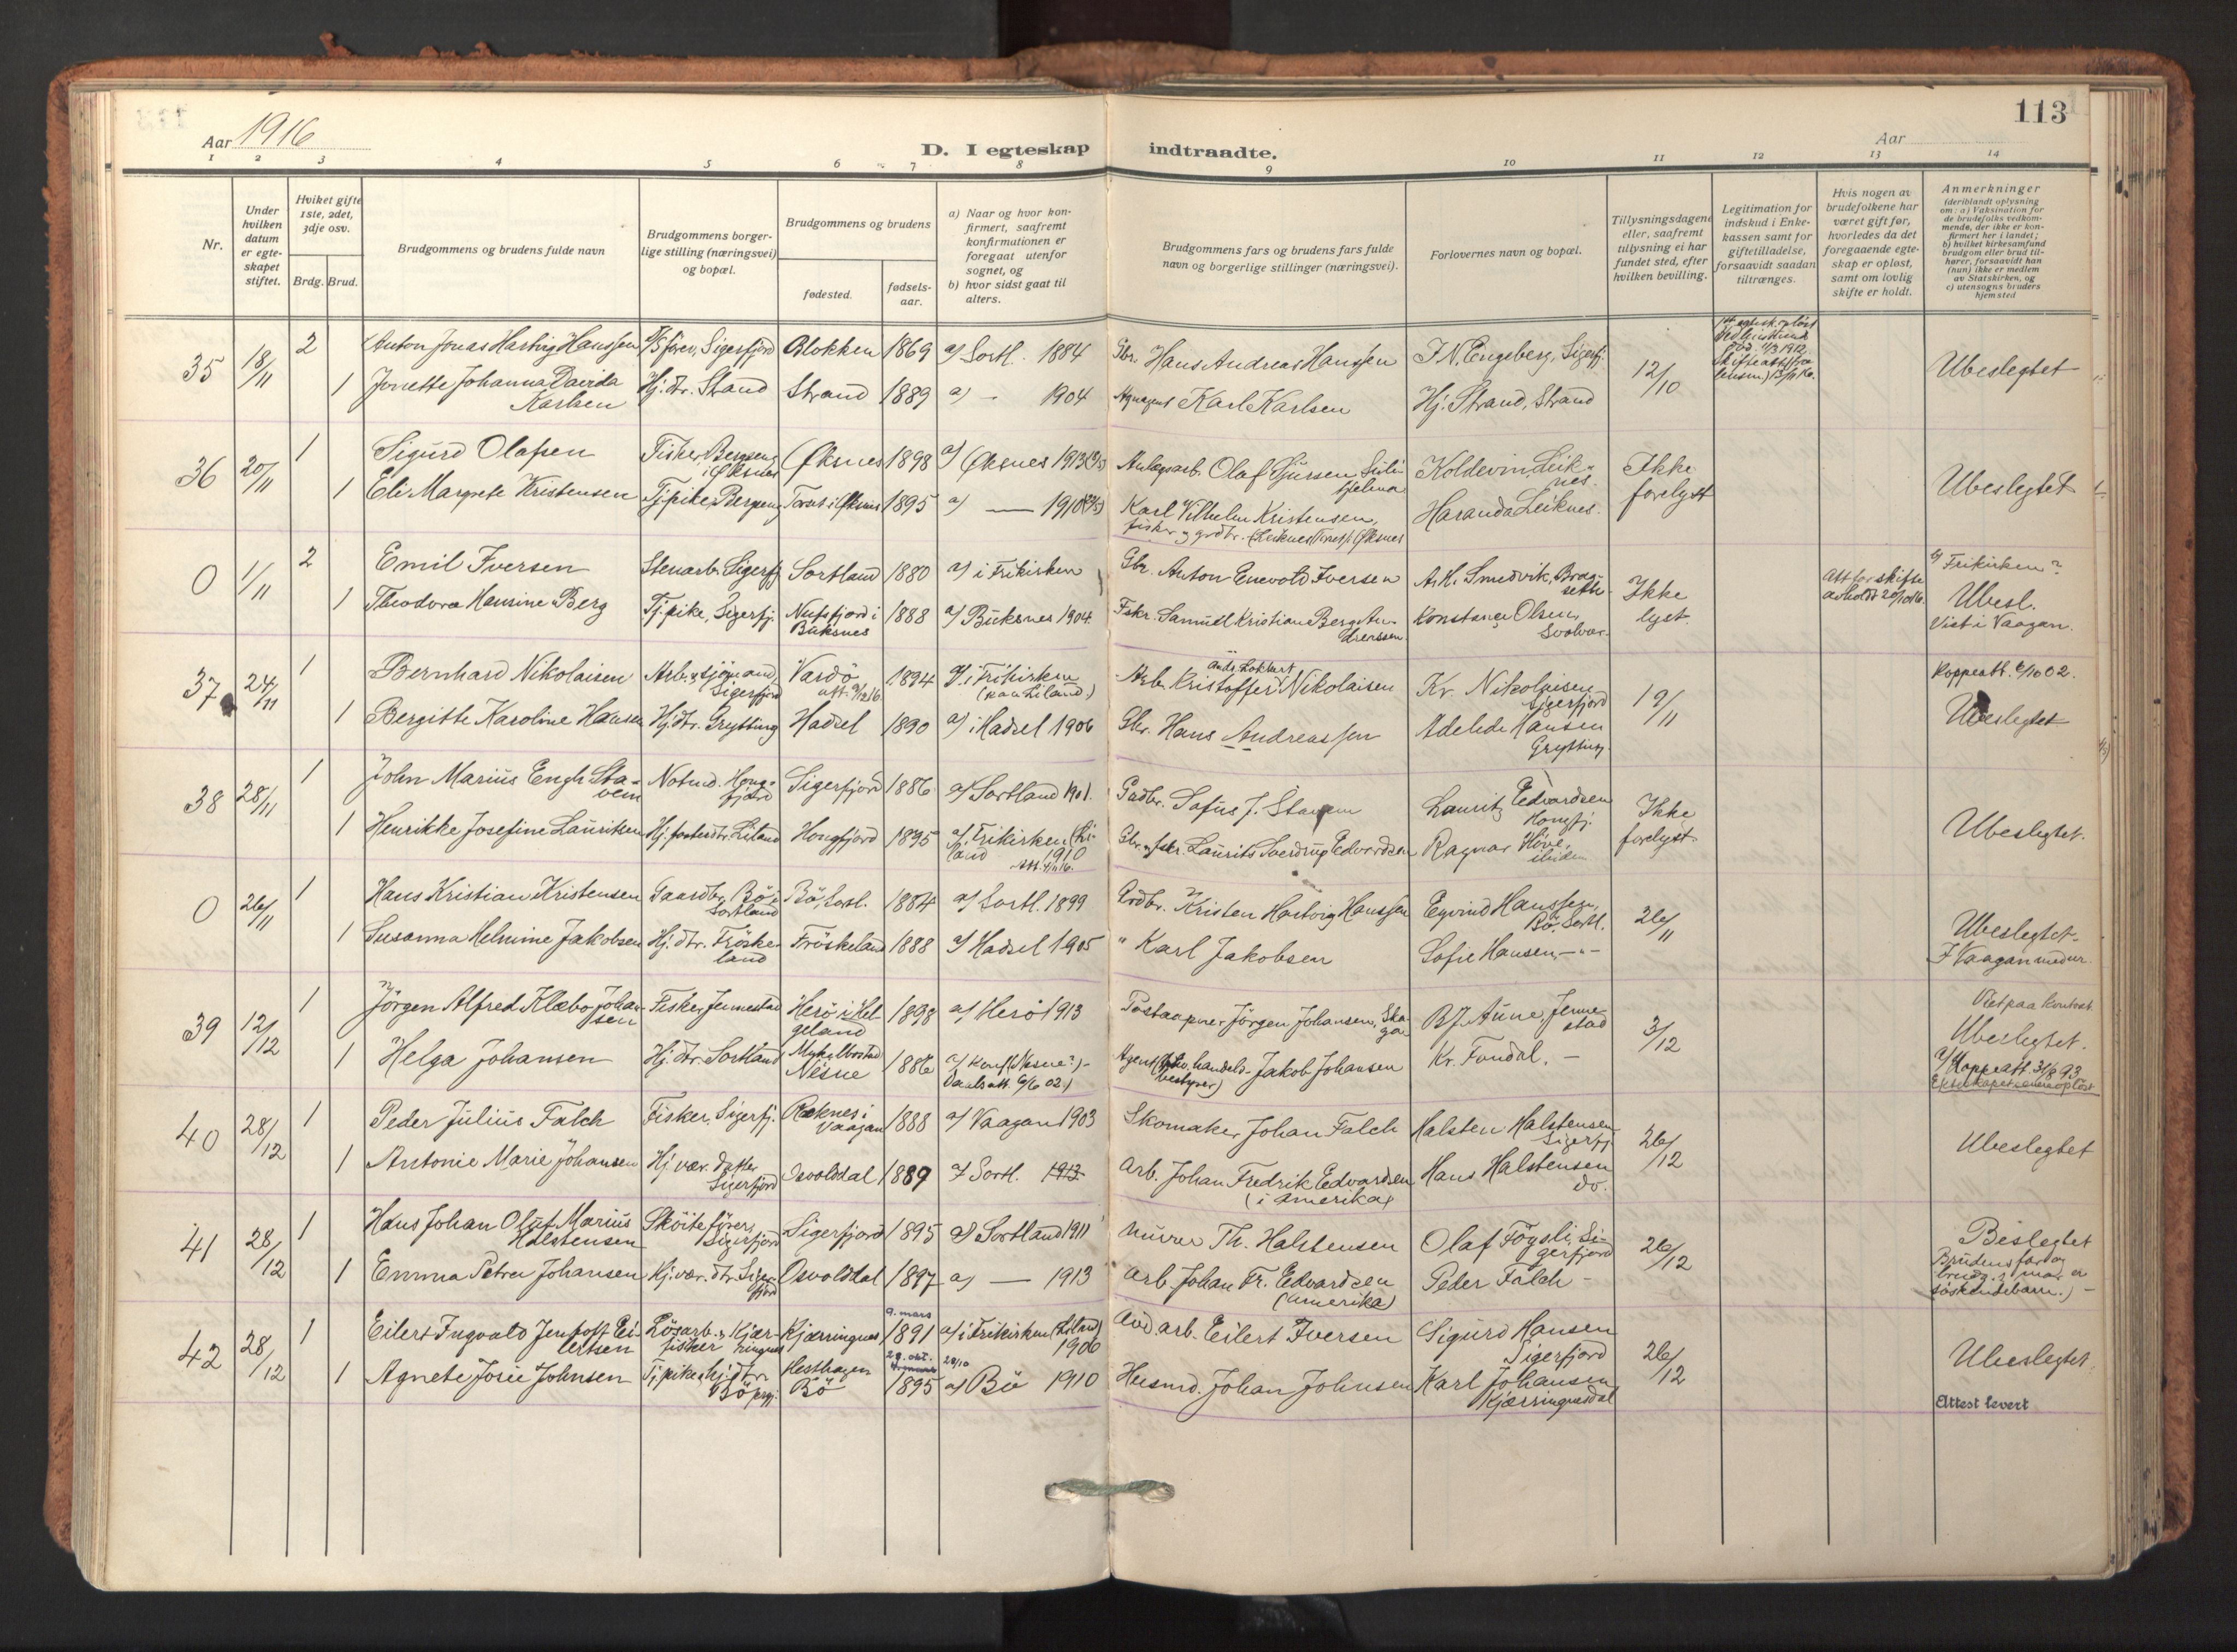 113
Aar 1916
D. I egteskap indtraadte.
Aar
1 2 3 4 5 6 7 8 9 10 11 12 13 14
Nr.
Under hvilken datum er egteskapet stiftet.
Hviket gifte 1ste, 2det, 3dje osv.
Brdg. Brud.
Brudgommens og brudens fulde navn
Brudgommens borgerlige stilling (næringsvei) og bopæl.
Brudgommens og brudens
fødested.
fødselsaar.
a) Naar og hvor konfirmert, saafremt konfirmationen er foregaat utenfor sognet, og
b) hvor sidst gaat til alters.
Brudgommens fars og brudens fars fulde navn og borgerlige stillinger (næringsvei).
Forlovernes navn og bopæl.
Tillysningsdagene eller, saafremt tillysning ei har fundet sted, efter hvilken bevilling.
Legitimation for indskud i Enkekassen samt for giftetilladelse, forsaavidt saadan tiltrænges.
Hvis nogen av brudefolkene har været gift før, hvorledes da det foregaaende egteskap er opløst, samt om lovlig skifte er holdt.
Anmerkninger
(deriblandt oplysning om: a) Vaksination for de brudefolks vedkommende, der ikke er konfirmert her i landet; b) hvilket kirkesamfund brudgom eller brud tilhører, forsaavidt han (hun) ikke er medlem av Statskirken, og c) utensogns bruders hjemsted
35 18/11 2 Anton Jonas Hartvig Hanssen Sigerfjord Blokken 1869 a) Sortl. 1884 Gbr. Hans Andreas Hanssen J. N. Engeberg, Sigerfj. 12/10 Ubeslegtet
1 Jonette Johanna Davida Karlsen Hj. dtr. Strand Strand 1889 a) - 1904 Karl Karlsen Hj. Strand, Strand
36 20/11 1 Sigurd Olafsen Fisker, i Øksnes Øksnes 1898 a) Øksnes 1913 Anlægsarb. Olaf Koldevin Leiknes. Ikke forelyst Ubeslegtet
1 Eli Margrete Kristensen Tj.pike, i Øksnes 1895 a) — 1910 Karl Vilhelm Kristensen, fisker og grdbr. Øksnes Haranda Leiknes.
0 1/11 2 Emil Iversen Stenarb. Sigerfj. Sortland 1880 a) i Frikirken Gbr. Anton Enevold Iversen A. H. Smedvik, Ikke lyst. Att for skifte avholdt 20/10 16. b) Frikirken? Ubesl. Viet i Vaagan.
1 Theodora Hansine Berg Tj.pike, Sigerfj. Nufsfjord i Buksnes 1888 a) Buksnes 1904. Fskr. Samuel Kristian Berg Konstance Olsen, Svolvær.
37 24/11 1 Bernhard Nikolaisen Arb. & sjømand, Sigerfjord Vardö 1894 a) i Frikirken (paa Liland) Arb. Kristoffer Nikolaisen Kr. Nikolaisen Sigerfjord 19/11 Koppeatt. 02.
1 Bergitte Karoline Hansen Hj.dtr. Grytting Hadsel 1890 a) i Hadsel 1906 Gbr. Hans Andreassen Adelede Hansen Grytting. Ubeslegtet
38 28/11 1 John Marius Engh Stavem Notmd. Hongfjord Sigerfjord 1886 a) Sortland 1901. Gadbr. Sofus J. Stavem Laurits Edvardsen Hongfj. Ikke forelyst. Ubeslegtet.
1 Henrikke Josefine Lauritsen Hj. Liland Hongfjord 1895 a) Frikirken (Liland 1910 Gbr. & fskr. Laurits Sverdrup Edvardsen Ragnar Hove, ibidem
0 26/11 1 Hans Kristian Kristensen Gaardbr. Bö i Sortland Bö, Sortl. 1884 a) Sortl. 1899 Grdbr. Kristen Hartvig Hanssen Eyvind Hanssen, Bö, Sortl. 26/11 Ubeslegtet.
1 Susanna Helmine Jakobsen Hj. dtr. Fröskeland Fröskeland 1888 a) Hadsel 1905 " Karl Jakobsen Sofie Hansen —"—
39 12/12 1 Jörgen Alfred Klæbo Johansen Fisker Jennestad Herö i Helgeland 1898 a) Herö 1913 Postaapner Jörgen Johansen, B. J. Aune Jennestad 3/12 Viet paa kontoret. Ubeslegtet.
1 Helga Johansen Hj. dtr. Sortland Nesne 1886 a) konf (Nesne?) - Daabsatt. 6/6 02.) Agent Jakob Johansen Kr. Fondal. — Koppeatt. 31/8 93.
40 28/12 1 Peder Julius Falch Fisker, Sigerfj. Ræknes i Vaagan 1888 a) Vaagan 1903 Skomaker Johan Falch Halsten Halstensen Sigerfj. 26/12 Ubeslegtet
1 Antonie Marie Johansen Hj.vær. datter Sigerfjord Osvolddal 1889 a) Sortl. 1913 Arb. Johan Fredrik Edvardsen (i Amerika) Hans Halstensen do.
41 28/12 1 Hans Johan Oluf Marius Halstensen Sköiteförer, Sigerfjord Sigerfjord 1895 a) Sortland 1911 Murer Th. Halstensen Olaf Sigerfjord 26/12 Beslegtet
1 Emma Petra Johansen Hj.vær. dtr. Sigerfjord Osvolddal 1897 a) — 1913 Arb. Johan Fr. Edvardsen (Amerika) Peder Falch - Brudens far og brudg.s mor er søskendebarn.)
42 28/12 1 Eilert Ingvald Jentoft Eilertsen Lösarb. & fisker Kjærringnes Kjærringnes 9. mars 1891 a) i Frikirken (Liland) 1906 arb. Eilert Iversen Sigurd Hansen Sigerfjord 26/12 Ubeslegtet
1 Agnete Josie Johnsen Tj.pike & hj.dtr. Bö Hesthagen Bö 29. okt. 1895 a) Bö 1910 Husmd. Johan Johnsen Karl Johansen Kjærringnesdal
Attest levert